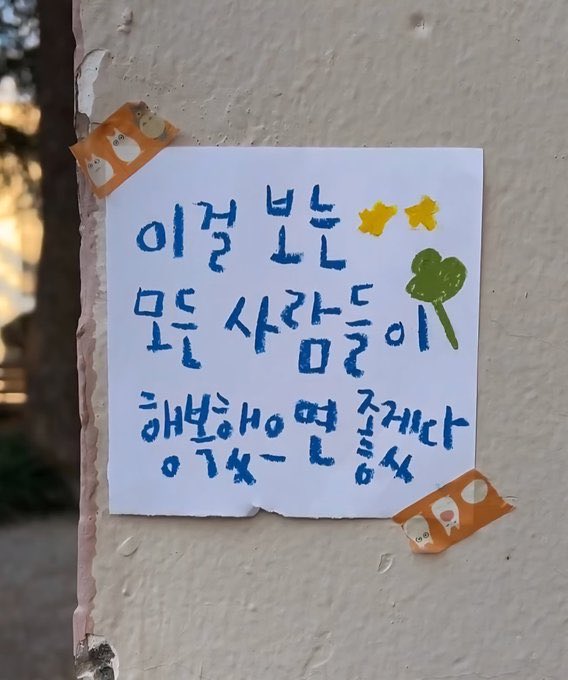 이걸 보는
모든 사람들이
행복했으면 좋겠다